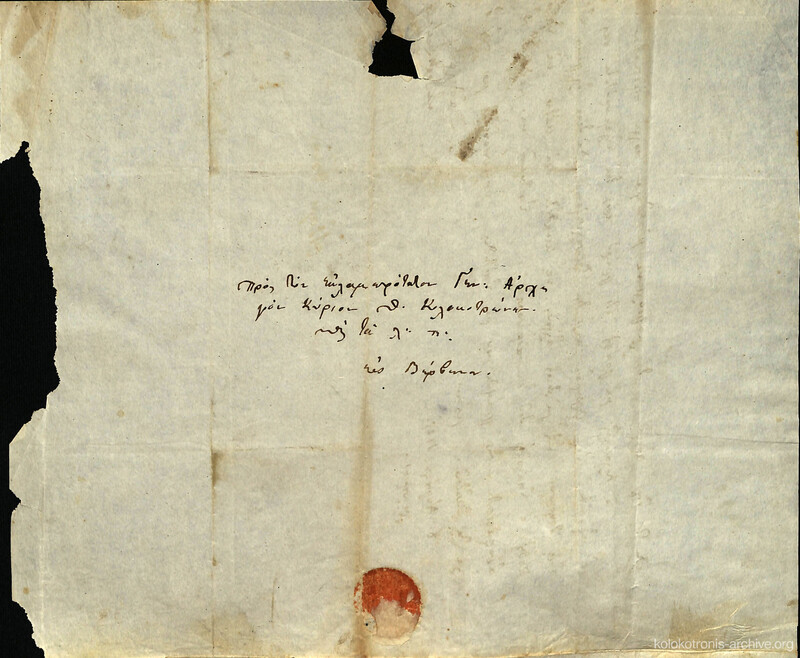 Πρὸς τὸν ἐκλαμπρότατον Γεν: Ἀρχη
γὸν Κύριον Θ. Κολοκοτρώνην.
τὰ π:
εἰς Βέρβαινα.
kolokotronis-archive.org